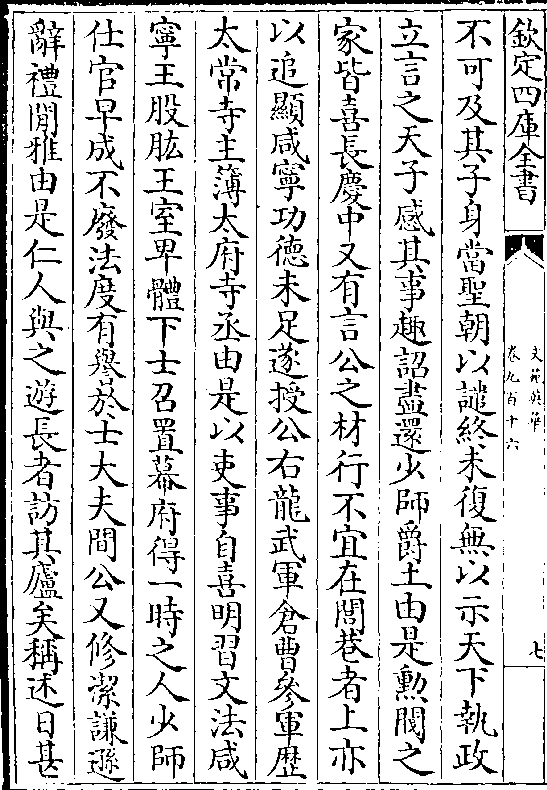 欽定四庫全書
文苑英華
卷九百十六
七
不可及其子身當聖朝以譴終未復無以示天下執政
立言之天子感其事趣詔盡還少師爵土由是勲閥之
家皆喜長慶中又有言公之材行不宜在閭巷者上亦
以追顯咸寧功徳未足遂授公右龍武軍倉曹參軍歴
太常寺主簿太府寺丞由是以吏事自喜明習文法咸
寧王股肱王室卑體下士召置幕府得一時之人少師
仕官早成不廢法度有譽於士大夫間公又修潔謙遜
辭禮閒雅由是仁人與之遊長者訪其廬矣稱述日甚